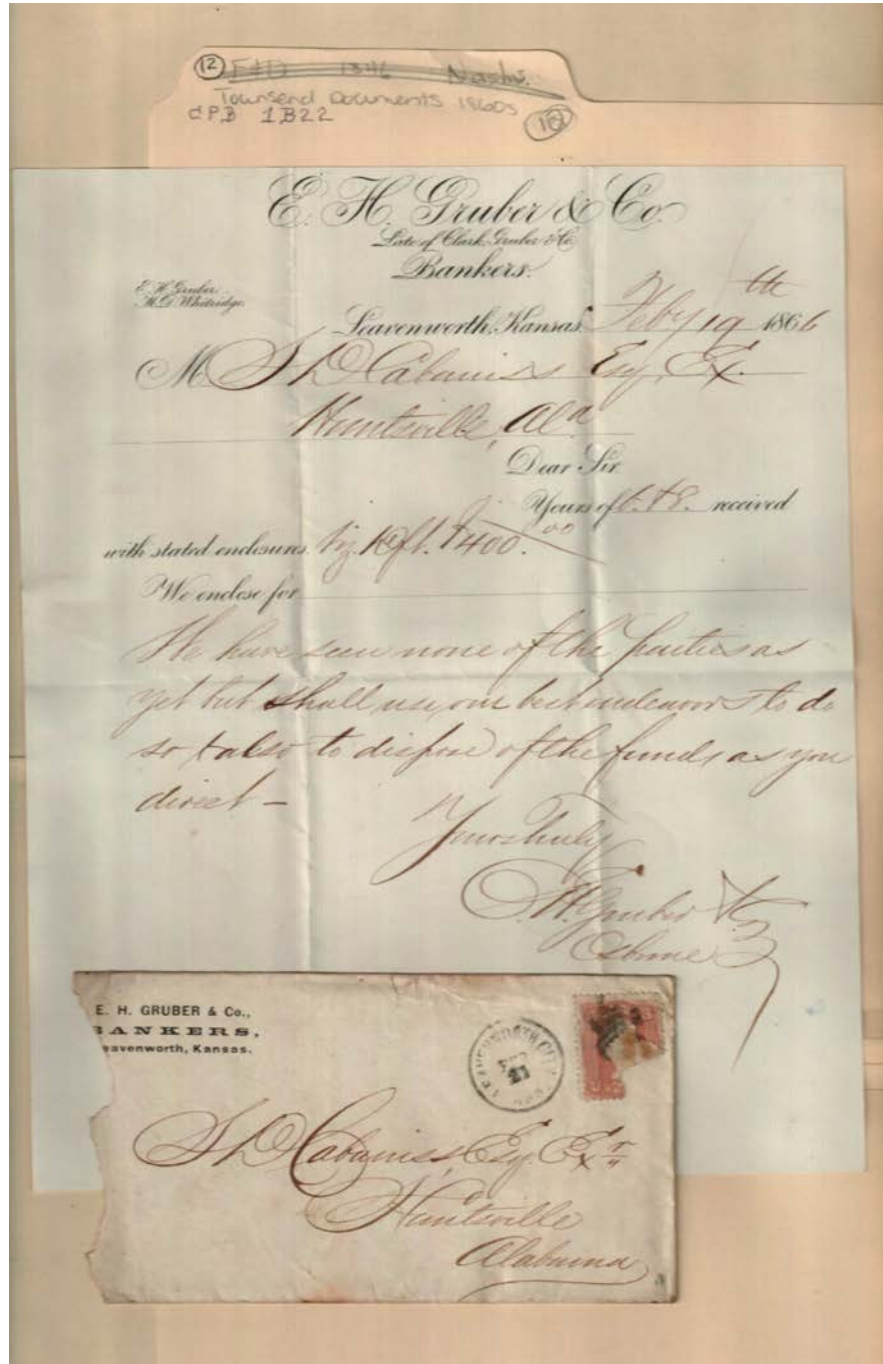 12 F&D 1846 Nashv.
Townsend Documents 1860s
CPB 1B22
12
E. H. Gruber & Co.
Late of Clark, Gruber & Co.
Bankers.
E. H. Gruber.
M. D. Whitridge.
Leavenworth, Kansas. Feby 19th 1866
M S D Cabaniss Esq. Ex.
Huntsville, Ala
Dear Sir
Yours of received
with stated enclosures. viz. $400.00
We enclose for
We have seen none of the parties as
yet but shall use our best endeavors to do
so & also to dispose of the funds as you
direct –
Yours truly
E. H. Gruber & Co
E. H. GRUBER & Co.,
BANKERS,
eavenworth, Kansas.
LEAVENWORTH CITY
21
S D Cabaniss, Esq. Exr
Huntsville
Alabama